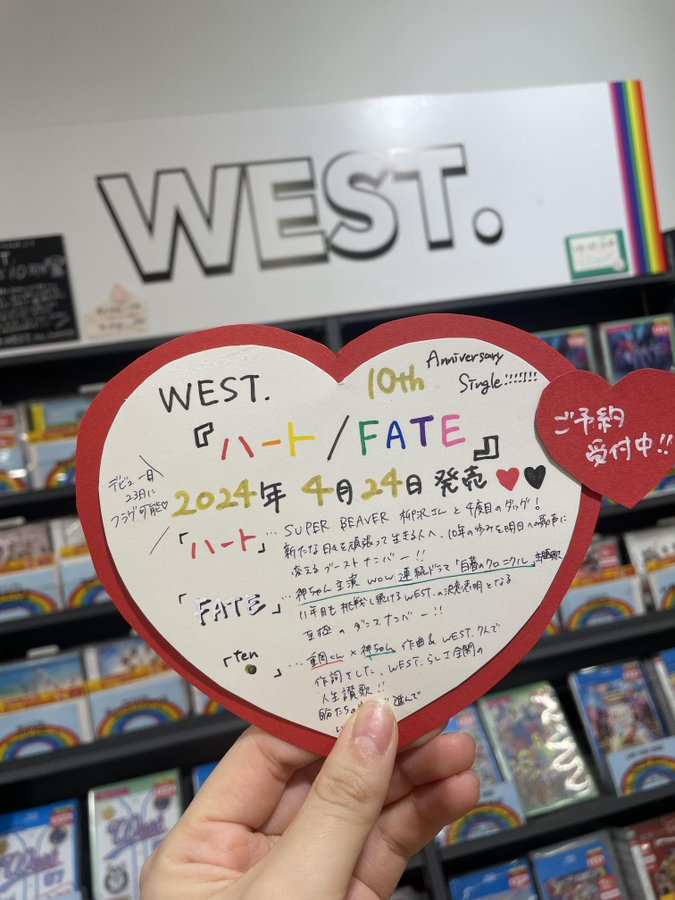 WEST.
WEST.
10th
Anniversary
Single!!!!!!!
『ハート/FATE』
デビュー日
23日に
フラゲ可能♡
2024年 4月24日 発売
ご予約
受付中!!
「ハート」… SUPER BEAVER 柳沢さん と 4度目のタッグ!
新たな日々を頑張って生きる人へ、10年の歩みを明日への
変えるブーストナンバー!!
「FATE」… 神ちゃん主演 WOW 連続ドラマ「白暮のクロニクル」主題歌
11年目も挑戦し続けるWEST.の決意表明となる
至極のダンスナンバー!!
「ten」… 重岡くん × 神ちゃん 作曲 & WEST.7人で
作詞をした、WEST.らしさ全開の
人生讃歌!!
進んで
West
West